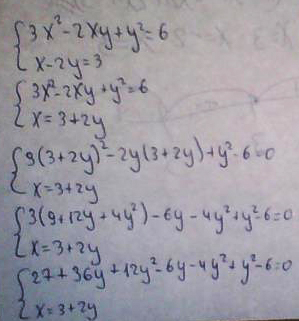 3x²-2xy+y²=6
x-2y=3
3x²-2xy+y²=6
x=3+2y
9(3+2y)²-2y(3+2y)+y²-6=0
x=3+2y
3(9+12y+4y²)-6y-4y²+y²-6=0
x=3+2y
27+36y+12y²-6y-4y²+y²-6=0
x=3+2y